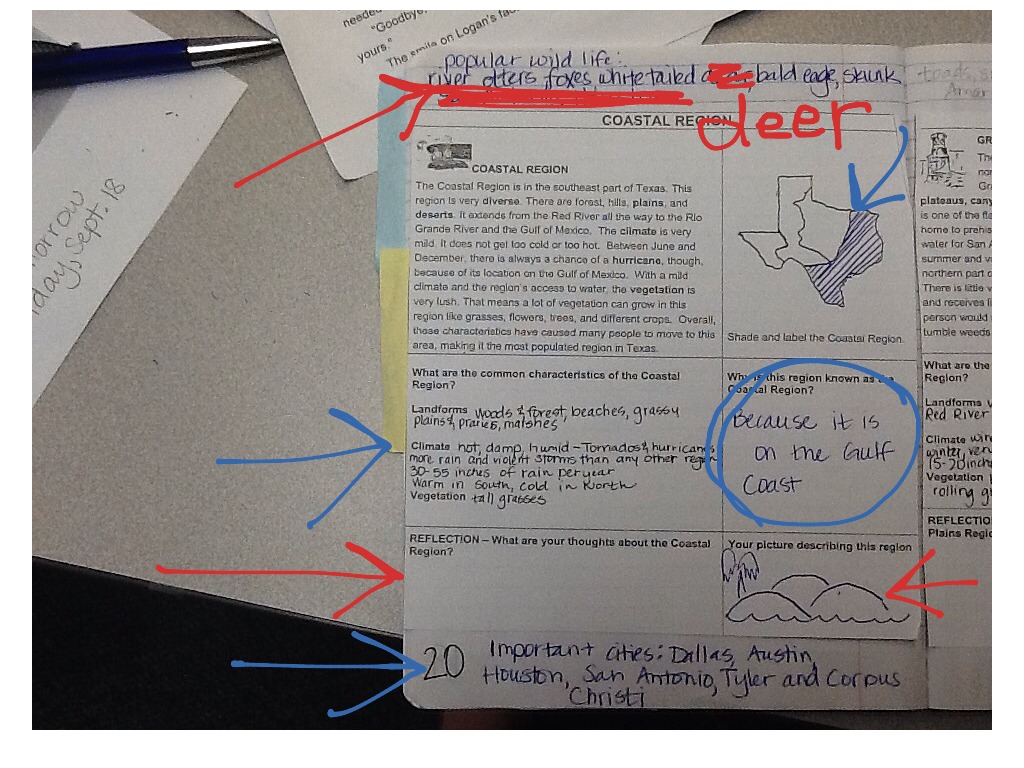 needed
"Goodbye,
yours."
The smile on Logan's
orrow
day, Sept. 18
popular wild life:
river otters, foxes, white tailed deer, bald eage, skunk
deer
COASTAL REGION
COASTAL REGION
The Coastal Region is in the southeast part of Texas. This
region is very diverse. There are forest, hills, plains, and
deserts. It extends from the Red River all the way to the Rio
Grande River and the Gulf of Mexico. The climate is very
mild. It does not get too cold or too hot. Between June and
December, there is always a chance of a hurricane, though,
because of its location on the Gulf of Mexico. With a mild
climate and the region's access to water, the vegetation is
very lush. That means a lot of vegetation can grow in this
region like grasses, flowers, trees, and different crops. Overall,
these characteristics have caused many people to move to this
area, making it the most populated region in Texas.
Shade and label the Coastal Region.
What are the common characteristics of the Coastal
Region?
Landforms woods & forest, beaches, grassy
plains & praries, marshes
Climate hot, damp, humid - Tornados & hurricanes
more rain and violent storms than any other region
30-55 inches of rain per year
Warm in South, cold in North
Vegetation tall grasses
Why is this region known as the
Coastal Region?
Because it is
on the Gulf
Coast
REFLECTION – What are your thoughts about the Coastal
Region?
Your picture describing this region
20
Important cities: Dallas, Austin,
Houston, San Antonio, Tyler and Corpus
Christi
toads, s
Amar
GR
The
nor
Gra
plateaus, cany
is one of the fla
home to prehis
water for San A
summer and v
northern part o
There is little v
and receives li
person would
tumble weeds
What are the
Region?
Landforms v
Red River
Climate win
winter, ver
15-20 inch
Vegetation
rolling g
REFLECTIO
Plains Regio